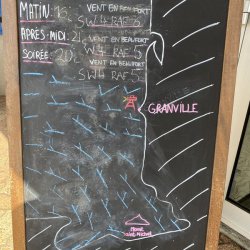 MATIN: 16° VENT EN BEAUFORT
SW 4 RAF 6
APRÈS-MIDI: 21° VENT EN BEAUFORT
W 4 RAF 5
SOIRÉE: 20° VENT EN BEAUFORT
SW 4 RAF 5
GRANVILLE
Mont
Saint-Michel